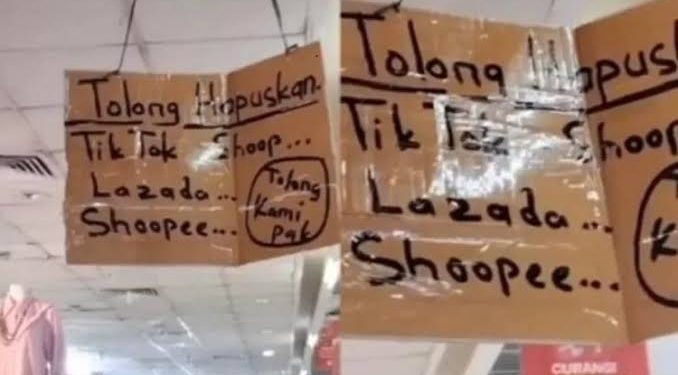 Tolong Hapuskan.
Tik Tok Shoop...
Lazada...
Shoopee...
Tolong
Kami
Pak
Tolong Hapus
Tik Tok Shoop
Lazada...
Shoopee...
K
CURANGI